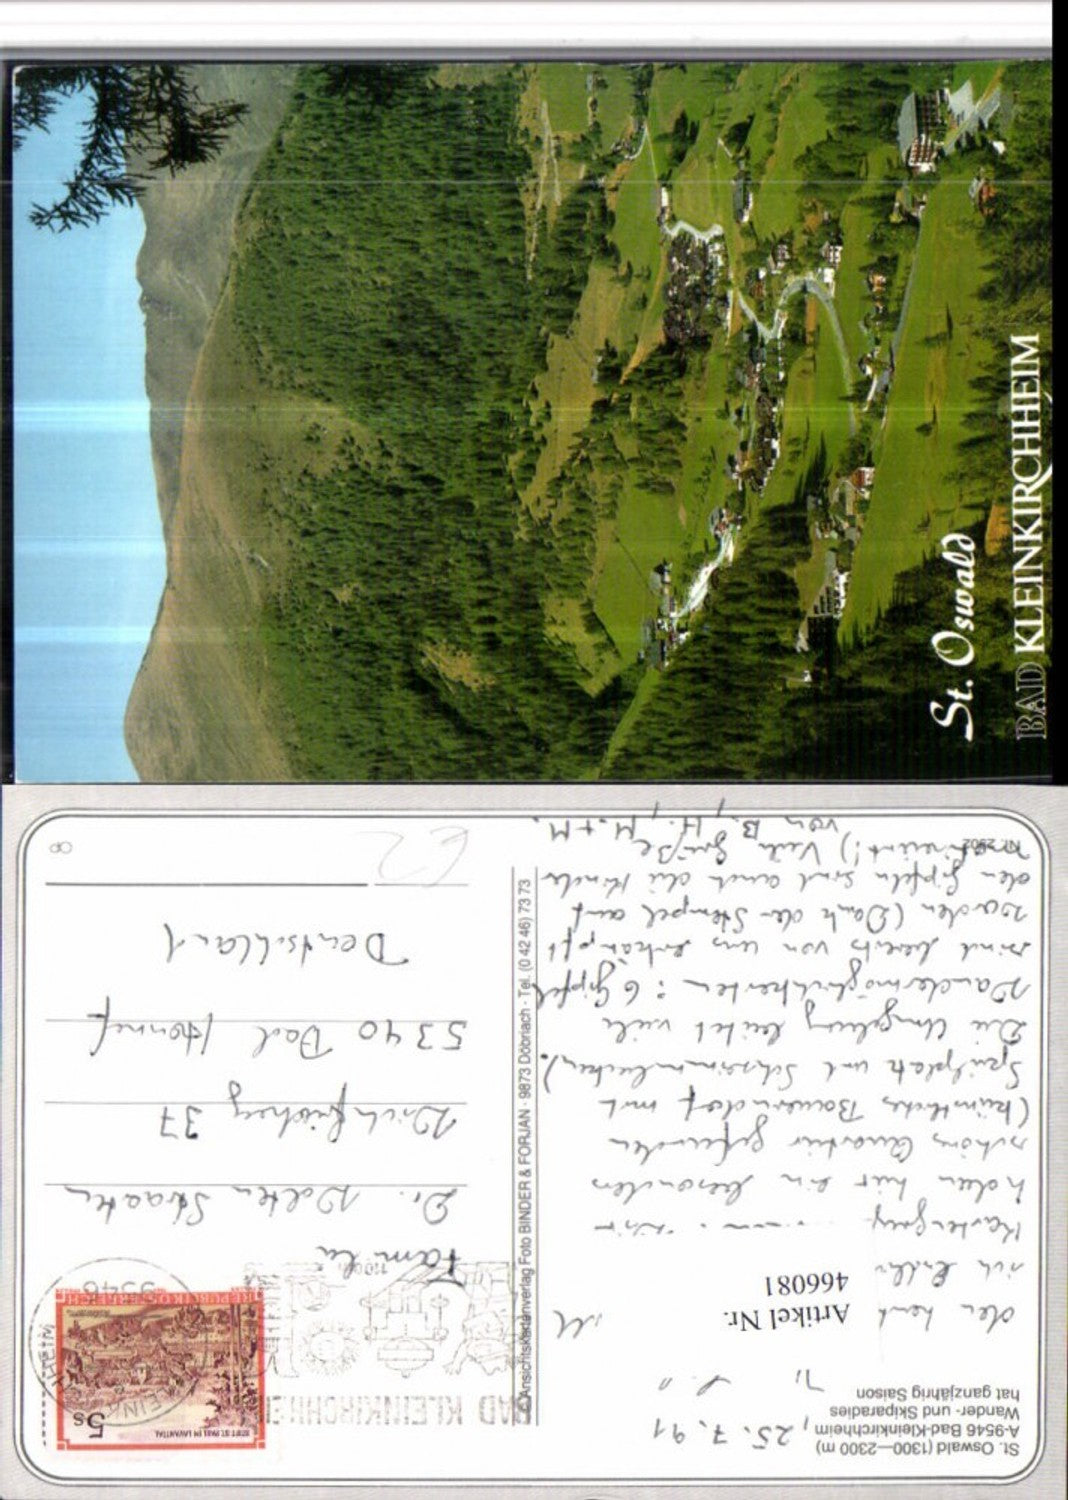 St. Oswald
BAD KLEINKIRCHHEIM
St. Oswald (1300—2300 m)
A-9546 Bad-Kleinkirchheim
Wander- und Skiparadies
hat ganzjährig Saison
25.7.91
Artikel Nr.
466081
der
haben hier ein besonders
schönes Quartier gefunden
(künstliches Bauerndorf mit
Spielplatz und Schwimmbecken).
Die Umgebung bietet viele
Wandermöglichkeiten: 6 Gipfel
sind bereits von uns erkämpft
worden (Dank der Stempel auf
den Gipfeln sind auch die Kinder
motiviert!) Viele Grüße
von B., H., M. + M.
Nr. 2902
© Ansichtskartenverlag Foto BINDER & FORJAN · 9873 Döbriach · Tel. (0 42 46) 73 73
BAD KLEINKIRCHHEI
STIFT ST. PAUL IM LAVANTTAL
5s
REPUBLIK ÖSTERREICH
9546
Familie
Dr. Wolter Straaten
37
5340 Bad Honnef
Deutschland